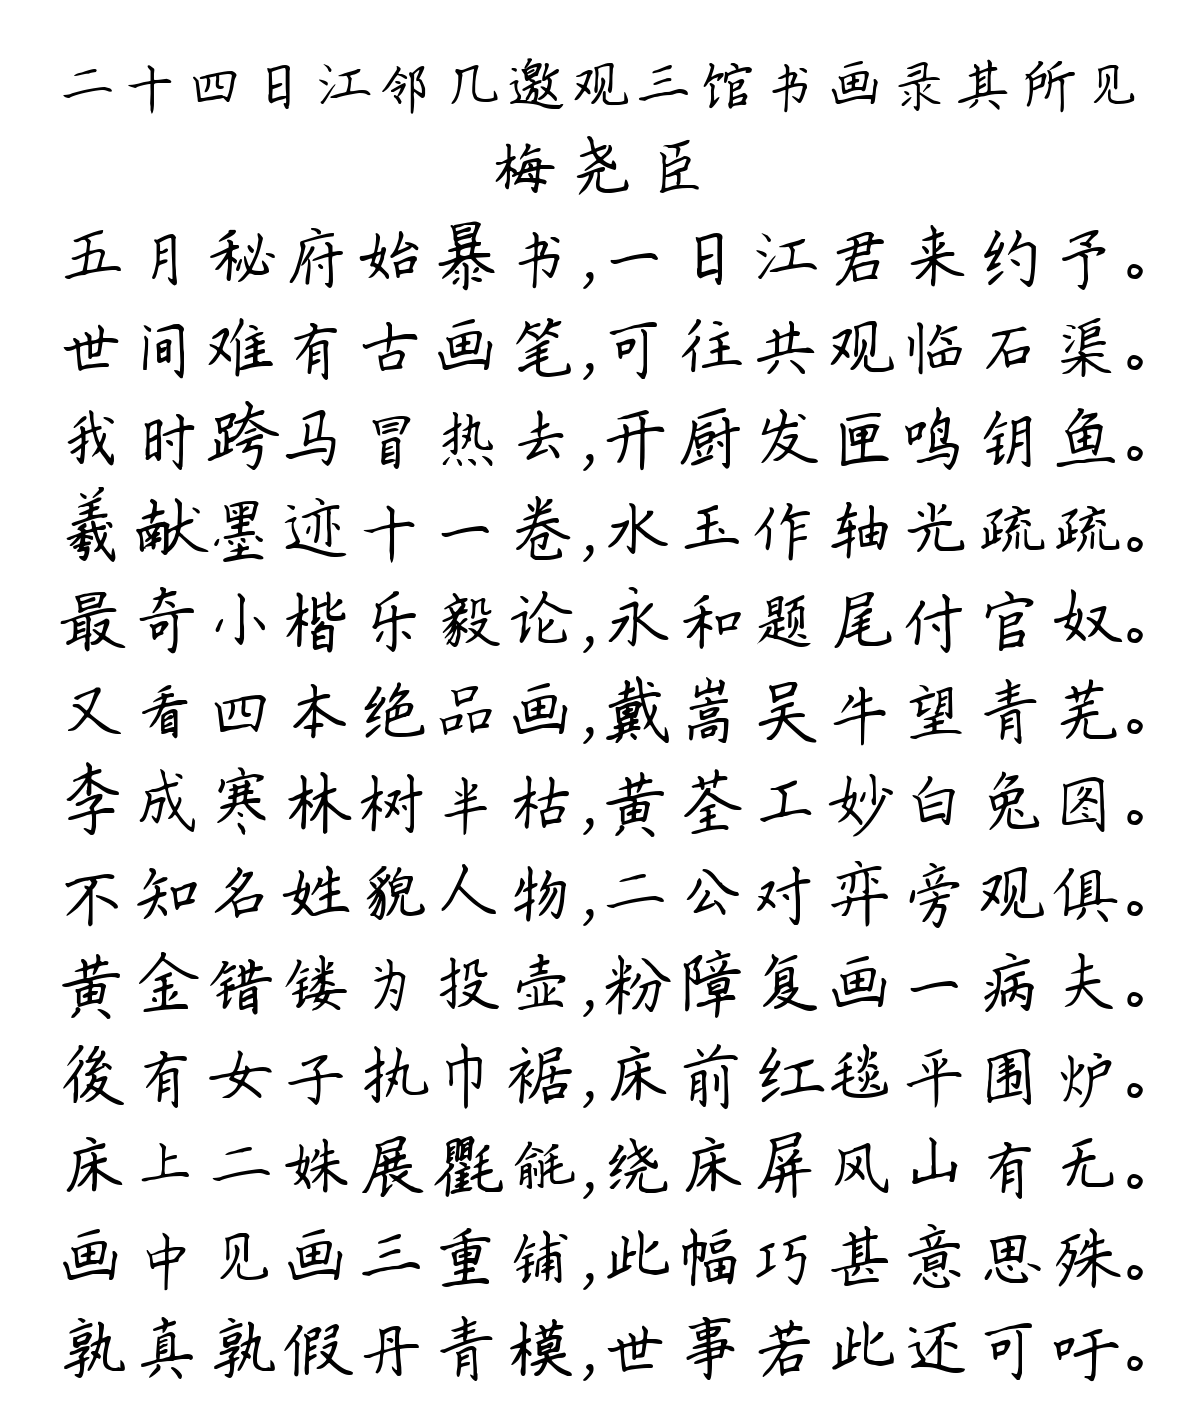 二十四日江邻几邀观三馆书画录其所见
梅尧臣
五月秘府始暴书,一日江君来约予。
世间难有古画笔,可往共观临石渠。
我时跨马冒热去,开厨发匣鸣钥鱼。
羲献墨迹十一卷,水玉作轴光疏疏。
最奇小楷乐毅论,永和题尾付官奴。
又看四本绝品画,戴嵩吴牛望青芜。
李成寒林树半枯,黄荃工妙白兔图。
不知名姓貌人物,二公对弈旁观俱。
黄金错镂为投壶,粉障复画一病夫。
後有女子执巾裾,床前红毯平围炉。
床上二姝展氍毹,绕床屏风山有无。
画中见画三重铺,此幅巧甚意思殊。
孰真孰假丹青模,世事若此还可吁。